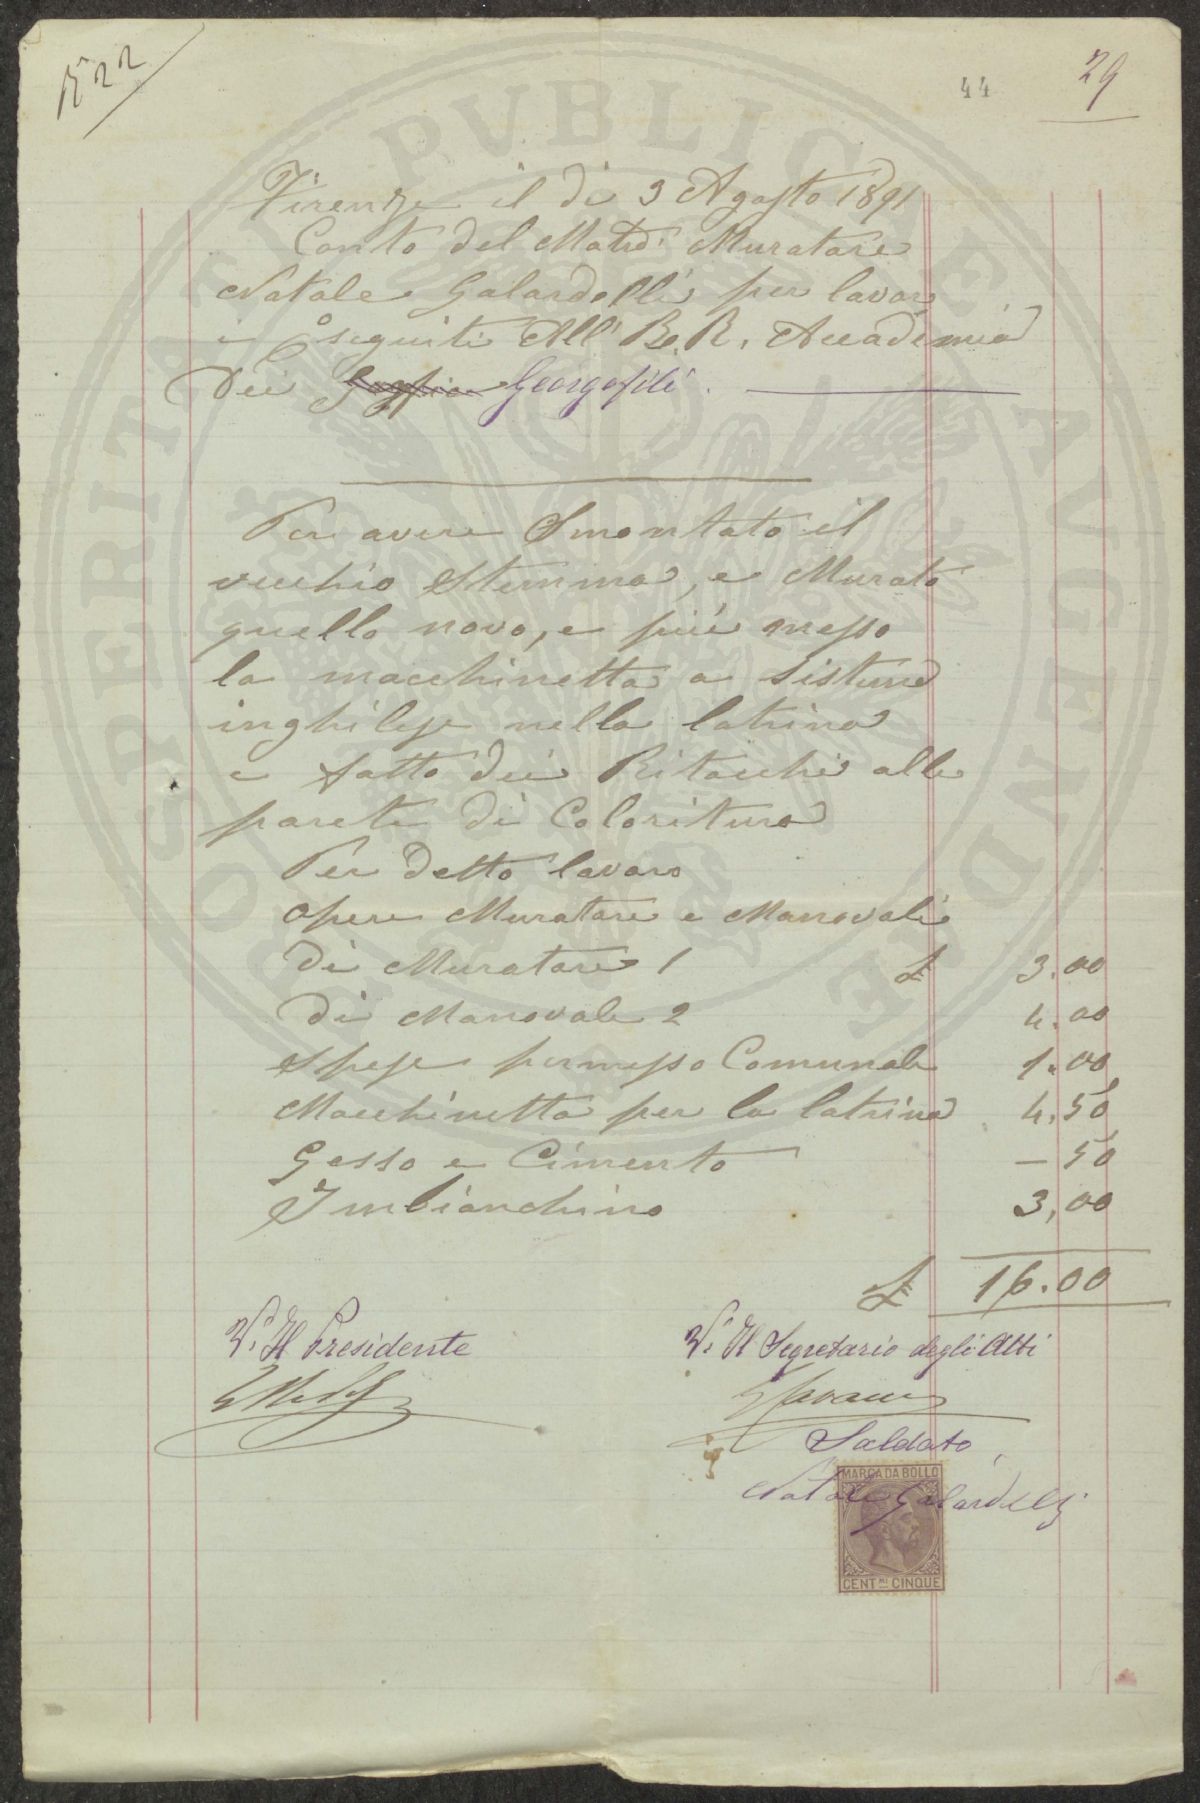 1522
44
29
Firenze il di 3 Agosto 1891
Conto del Muratore
Natale Galardelli per lavor
i eseguiti All' R. Accademia
Dei Georgofili.
Per avere Smontato il
vecchio Stemma, e Murato
quello novo, e più messo
la macchinetta a sistema
inghilese nella latrina
e fatto dei Ritocchi alle
parete di Coloritura
Per detto lavoro
opere Muratore e Manovali
Di Muratore 1 £ 3.00
Di Manovale 2 4.00
Spese permesso Comunale 1.00
Macchinetta per la latrina 4.50
Gesso e Cimento – 50
Imbianchino 3,00
£ 16.00
V. Il Presidente
V. Il Segretario degli Atti
Saldato
Natale Galardelli
MARCA DA BOLLO
CENT.MI CINQUE
PROSPERITATI PVBLICAE AVGENDAE